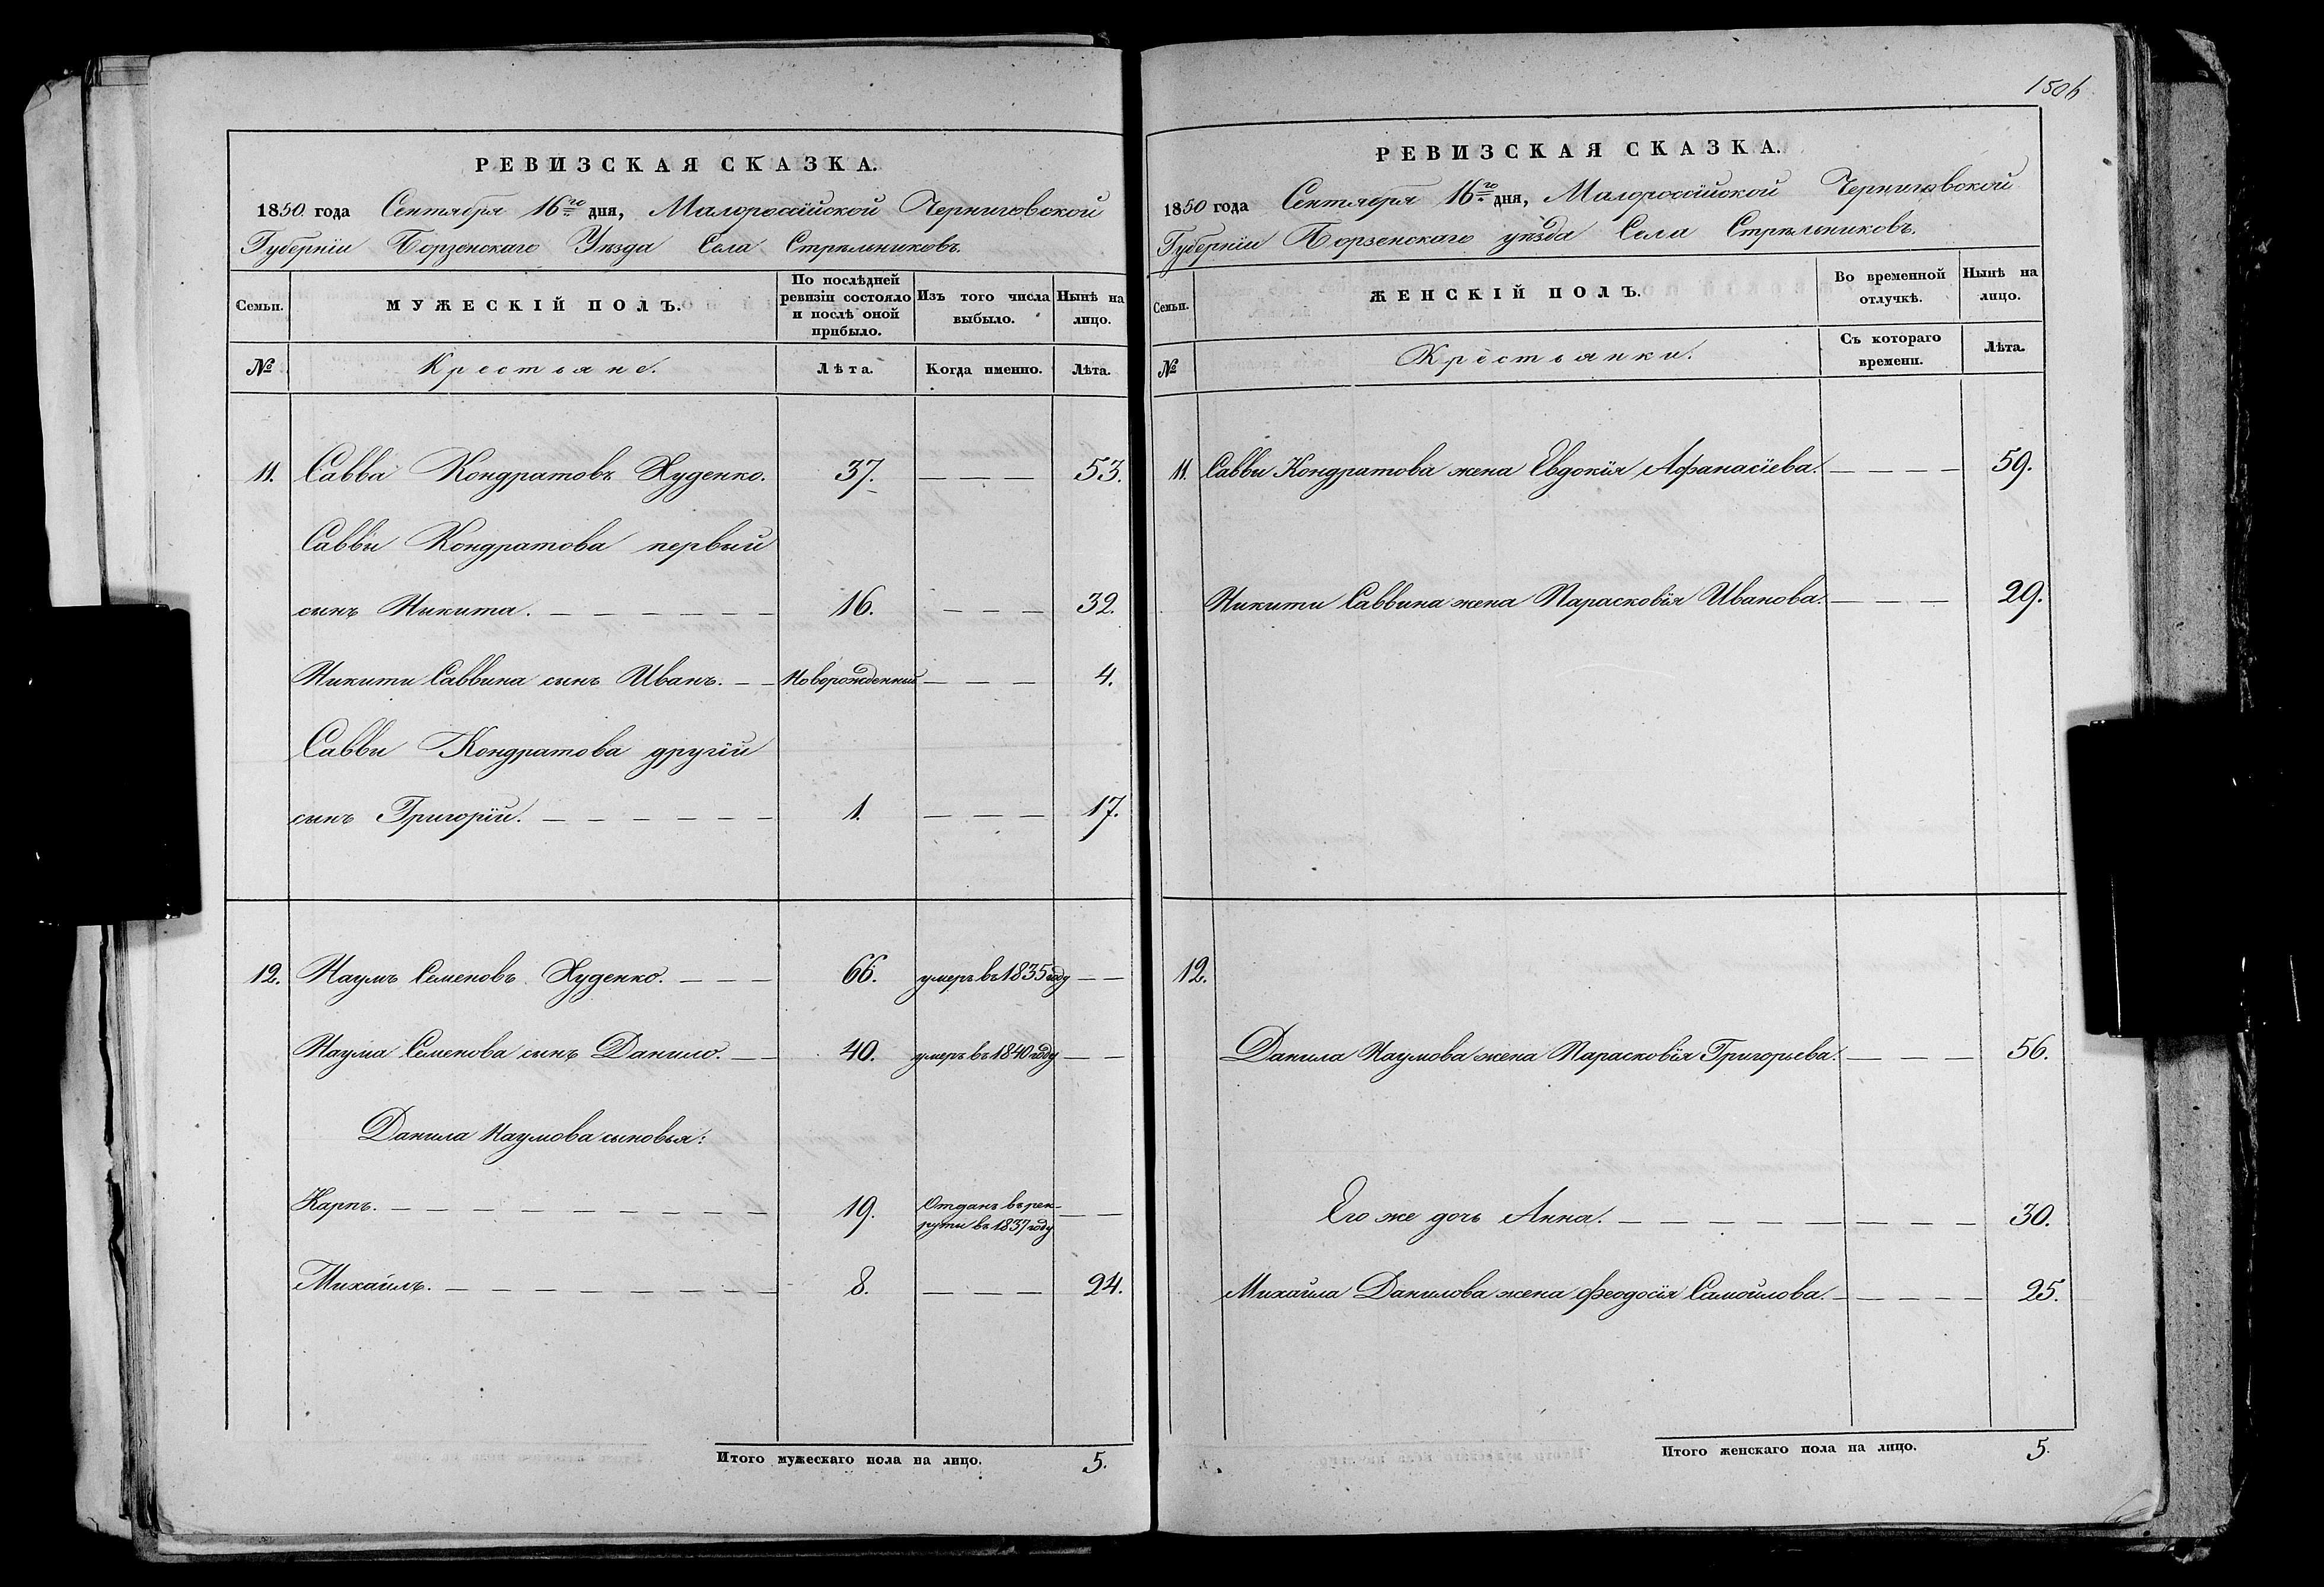 РЕВИЗСКАЯ СКАЗКА.
1850 года Сентября 16го дня, Малороссійской Черниговской
Губерніи Борзенскаго Уѣзда Села Стрѣльниковъ.
Семьи.
МУЖЕСКІЙ ПОЛЪ.
По послѣдней
ревизіи состояло
и послѣ оной
прибыло.
Изъ того числа
выбыло.
Нынѣ на
лицо.
№
Крестьяне.
Лѣта.
Когда именно.
Лѣта.
11. Савва Кондратовъ Худенко. 37. — — — 53.
Саввы Кондратова первый
сынъ Никита. — — — — — — 16. — — — 32.
Никиты Саввина сынъ Иванъ. — — Новорожденный — — — 4.
Саввы Кондратова другій
сынъ Григорій. — — — — — — 1. — — — 17.
12. Наумъ Семеновъ Худенко. — — — 66. умеръ въ 1835 году — —
Наума Семенова сынъ Данило. — — 40. умеръ въ 1840 году — —
Данила Наумова сыновья:
Карпъ. — — — — — — — — — 19. Отданъ въ рек-
руты въ 1837 году — —
Михайлъ. — — — — — — — — 8. — — — 24.
Итого мужескаго пола на лицо. 5.
1506
РЕВИЗСКАЯ СКАЗКА.
1850 года Сентября 16го дня, Малороссійской Черниговской
Губерніи Борзенскаго уѣзда Села Стрѣльниковъ.
Семьи.
ЖЕНСКІЙ ПОЛЪ.
Во временной
отлучкѣ.
Нынѣ на
лицо.
№
Крестьянки.
Съ котораго
времени.
Лѣта.
11. Саввы Кондратова жена Евдокія Афанасіева. — — — — 59.
Никиты Саввина жена Парасковія Иванова. — — — — 29.
12.
Данила Наумова жена Парасковія Григорьева. — — — — 56.
Его же дочь Анна. — — — — — — — — — — 30.
Михайла Данилова жена Феодосія Самойлова. — — — — — 25.
Итого женскаго пола на лицо. 5.